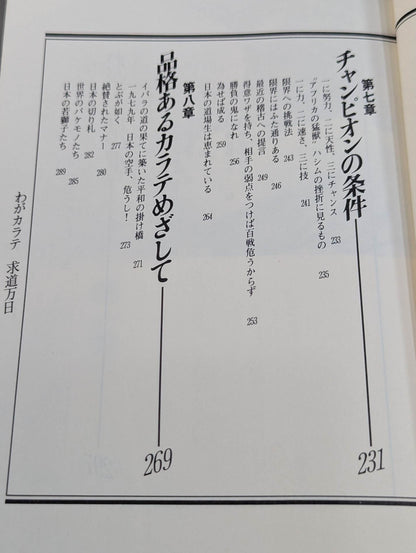 第七章
チャンピオンの条件 231
一に努力、二に天性、三にチャンス 233
"アフリカの猛獣"ハシムの挫折に見るもの 235
一に力、二に速さ、三に技 241
限界への挑戦法 243
限界にはふた通りある 246
最近の稽古への提言 249
得意ワザを持ち、相手の弱点をつけば百戦危うからず 253
勝負の鬼になれ 256
為せば成る 259
日本の道場生は恵まれている 264
第八章
品格あるカラテめざして 269
イバラの道の果てに築いた平和の掛け橋 271
一九七九年、日本の空手、危うし! 273
とぶが如く 277
絶賛されたマナー 280
日本の切り札 282
世界のバケモノたち 285
日本の若獅子たち 289
わがカラテ 求道万日